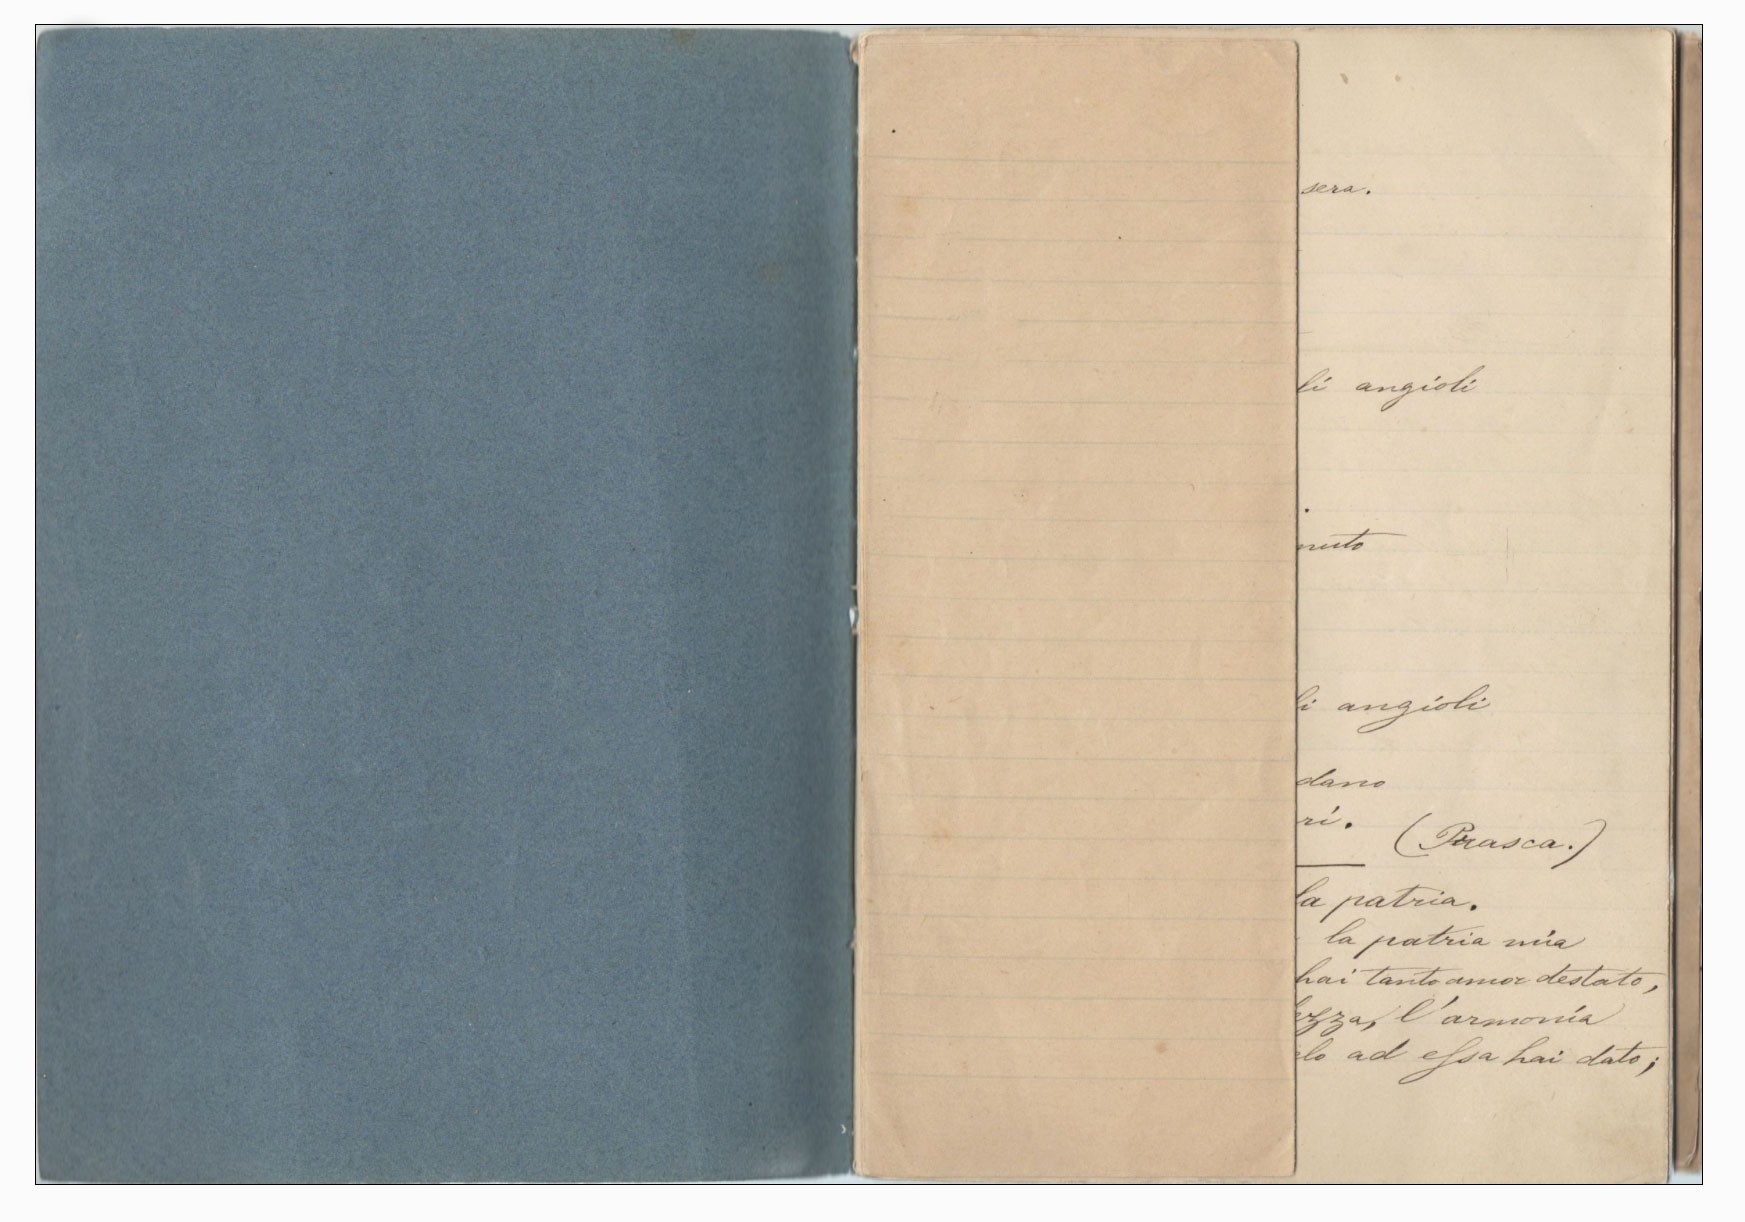 sera.
li angioli
nuto
li angioli
dano
ri.
(Prasca.)
la patria.
la patria mia
hai tanto amor destato,
ezza, l'armonía
elo ad essa hai dato;